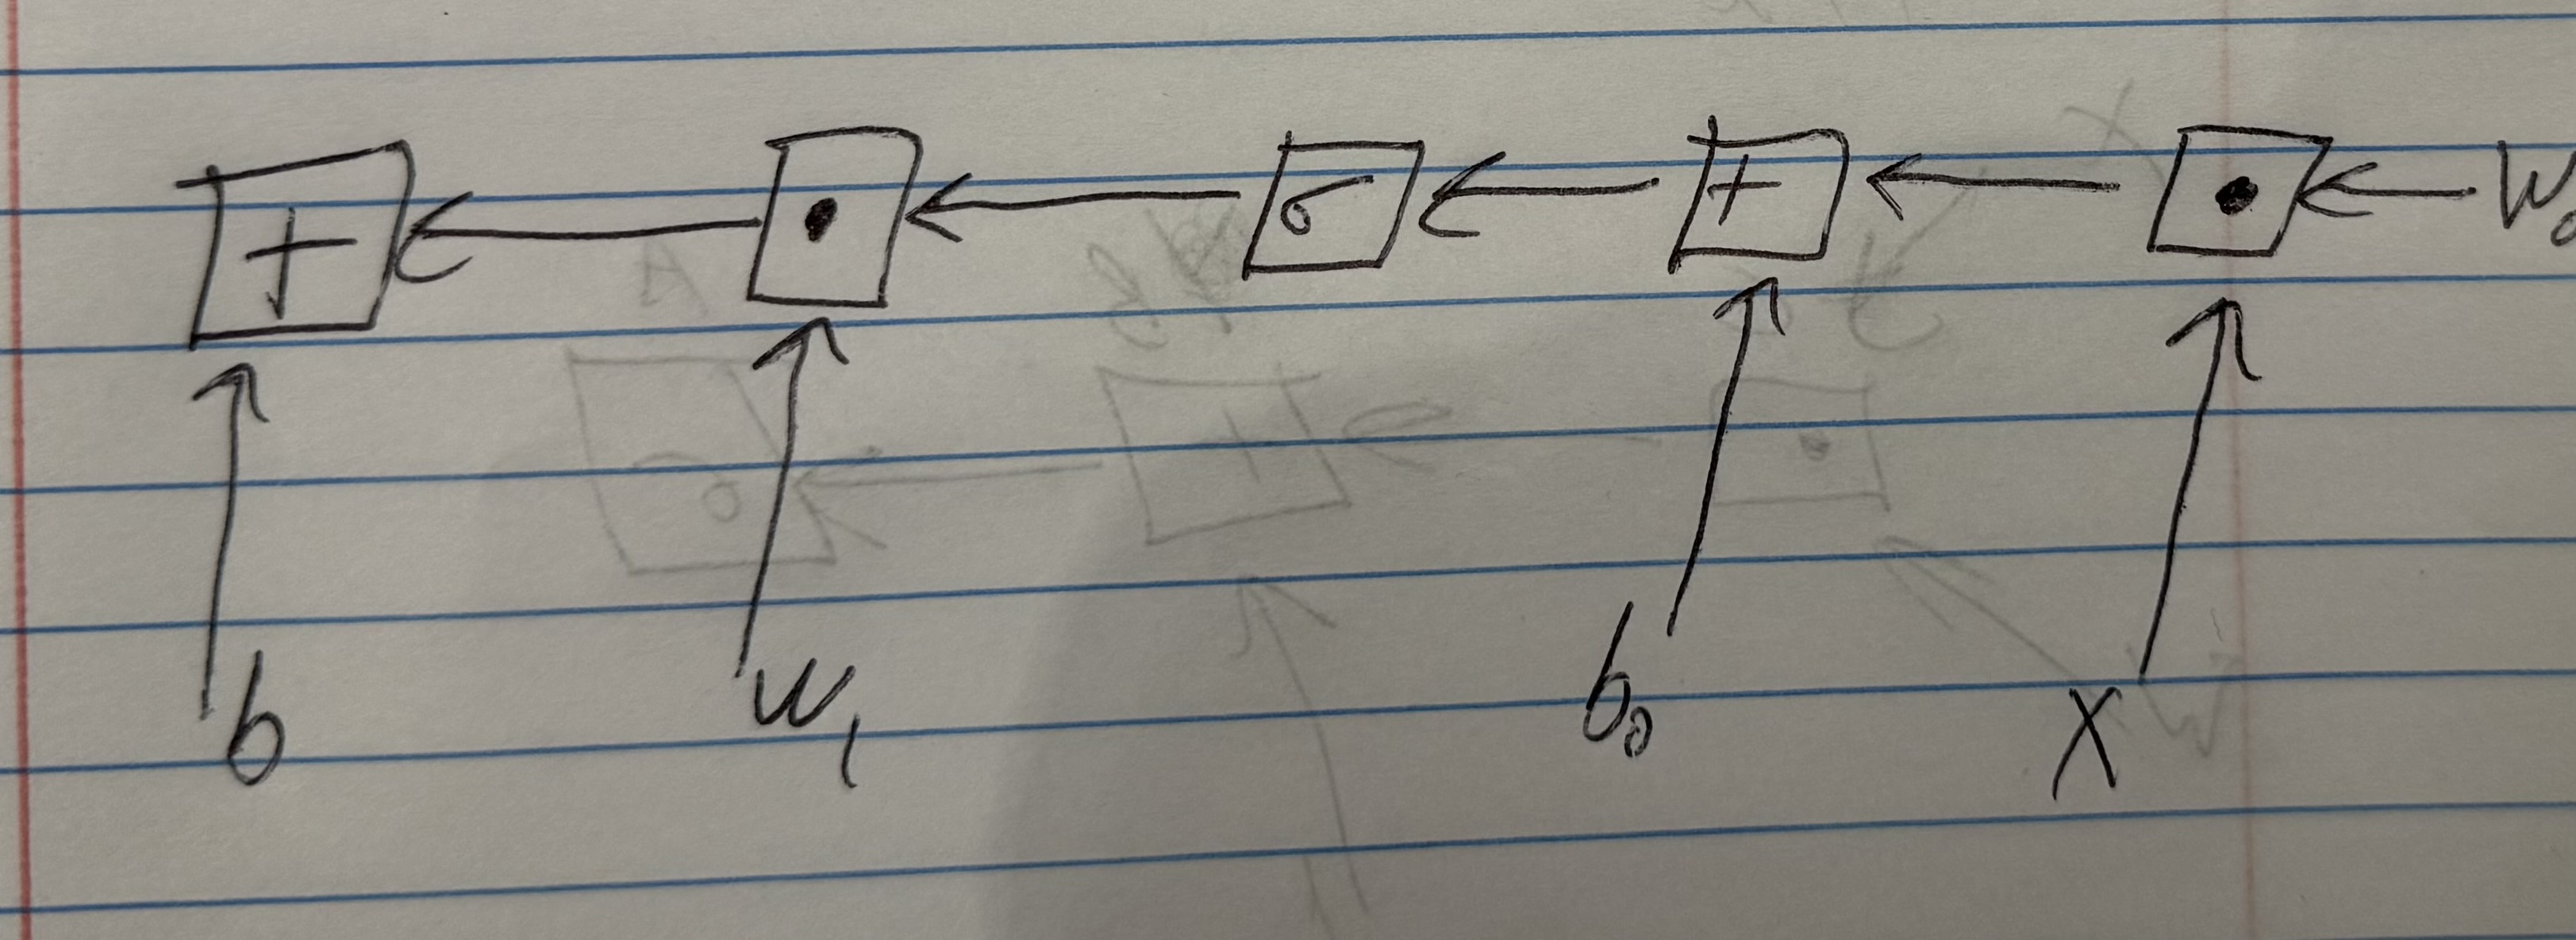 + • σ + • W₀
b w₁ b₀ X